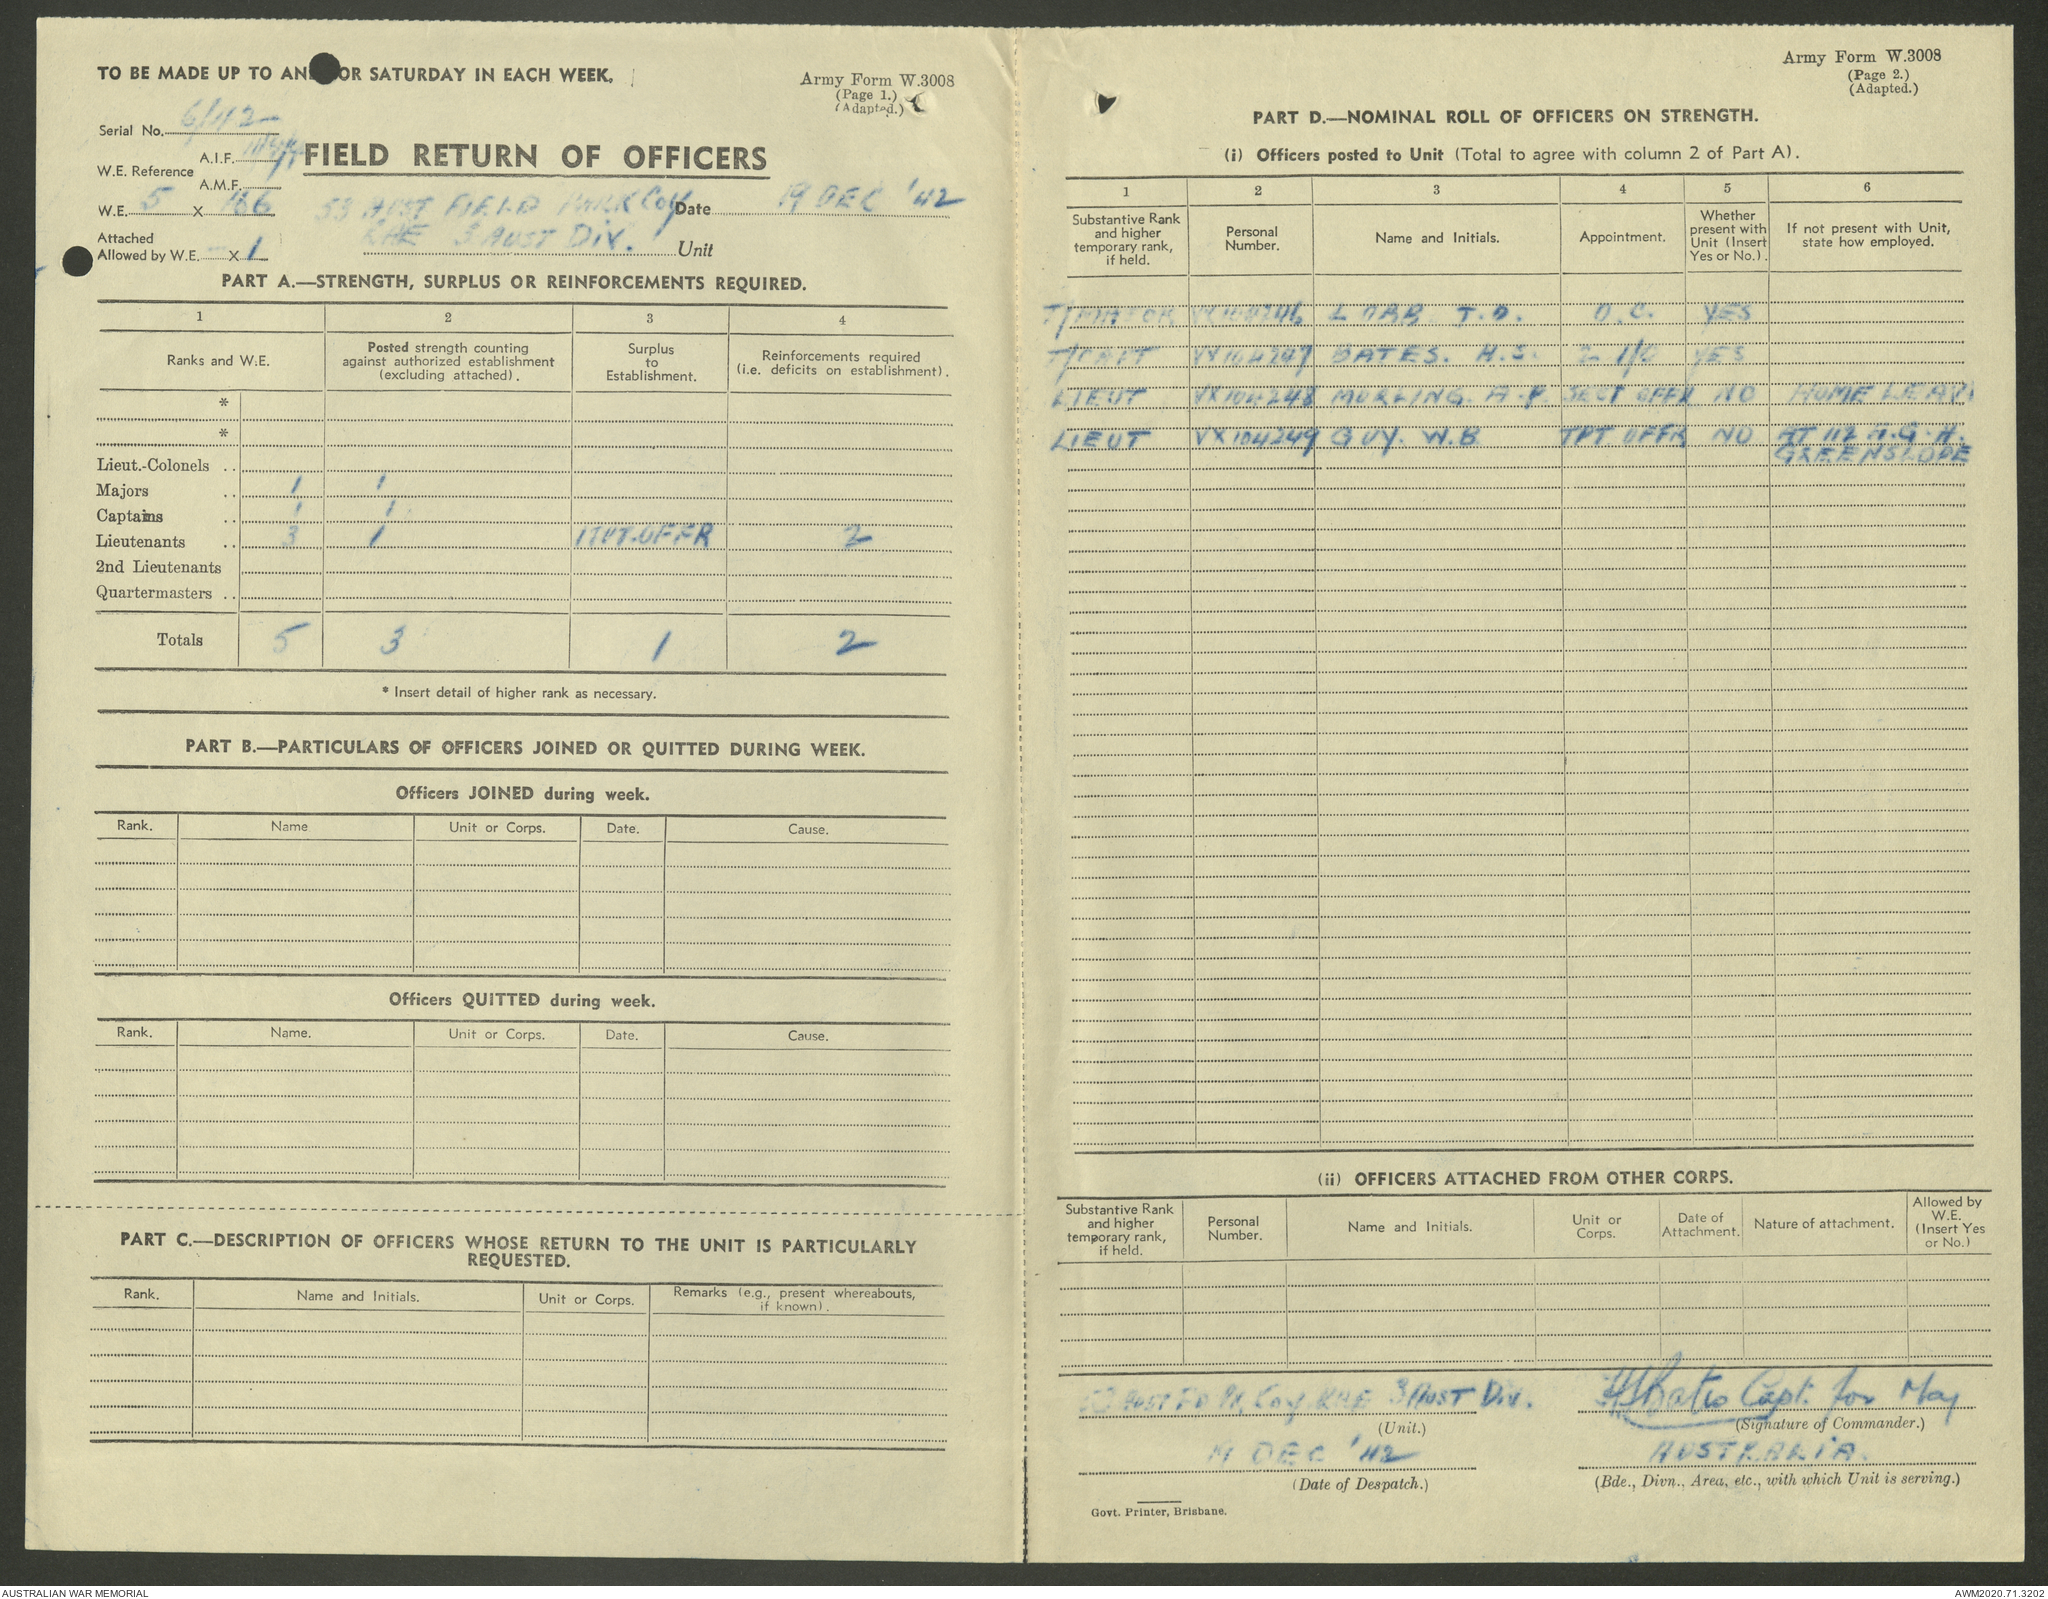 TO BE MADE UP TO AN OR SATURDAY IN EACH WEEK.
Army Form W.3008
(Page 1.)
(Adapted.)
Serial No. 6/42
W.E. Reference A.I.F.
A.M.F.
FIELD RETURN OF OFFICERS
W.E. 5 x 166
AUST FIELD PARK Coy
Date 19 DEC '42
RAE 3 AUST DIV. Unit
Attached
Allowed by W.E. - x 1
PART A.—STRENGTH, SURPLUS OR REINFORCEMENTS REQUIRED.
1 2 3 4
Ranks and W.E.
Posted strength counting against authorized establishment (excluding attached).
Surplus to Establishment.
Reinforcements required (i.e. deficits on establishment).
*
*
Lieut.-Colonels ..
Majors .. 1 1
Captains .. 1 1
Lieutenants .. 3 1 1 TPT. OFFR 2
2nd Lieutenants
Quartermasters ..
Totals 5 3 1 2
* Insert detail of higher rank as necessary.
PART B.—PARTICULARS OF OFFICERS JOINED OR QUITTED DURING WEEK.
Officers JOINED during week.
Rank. Name Unit or Corps. Date. Cause.
Officers QUITTED during week.
Rank. Name. Unit or Corps. Date. Cause.
PART C.—DESCRIPTION OF OFFICERS WHOSE RETURN TO THE UNIT IS PARTICULARLY
REQUESTED.
Rank. Name and Initials. Unit or Corps. Remarks (e.g., present whereabouts, if known).
Army Form W.3008
(Page 2.)
(Adapted.)
PART D.—NOMINAL ROLL OF OFFICERS ON STRENGTH.
(i) Officers posted to Unit (Total to agree with column 2 of Part A).
1 2 3 4 5 6
Substantive Rank and higher temporary rank, if held.
Personal Number.
Name and Initials.
Appointment.
Whether present with Unit (Insert Yes or No.).
If not present with Unit, state how employed.
T/MAJOR VX104246 T.D. O.C. YES
T/CAPT VX104247 BATES. H.S. 2 I/C YES
LIEUT VX104248 MORLING. A.P. SECT OFFR NO HOME LEAVE
LIEUT VX104249 GUY. W.B TPT OFFR NO AT 112 A.G.H.
GREENSLOPE
(ii) OFFICERS ATTACHED FROM OTHER CORPS.
Substantive Rank and higher temporary rank, if held.
Personal Number.
Name and Initials.
Unit or Corps.
Date of Attachment.
Nature of attachment.
Allowed by W.E. (Insert Yes or No.)
AUST FD PK Coy RAE 3 AUST Div.
(Unit.)
HSBates Capt. for Maj
(Signature of Commander.)
19 DEC '42
(Date of Despatch.)
AUSTRALIA.
(Bde., Divn., Area, etc., with which Unit is serving.)
Govt. Printer, Brisbane.
AUSTRALIAN WAR MEMORIAL
AWM2020.71.3202